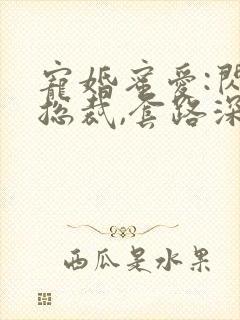 寵婚蜜愛:閃
總裁,套路深
西瓜是水果